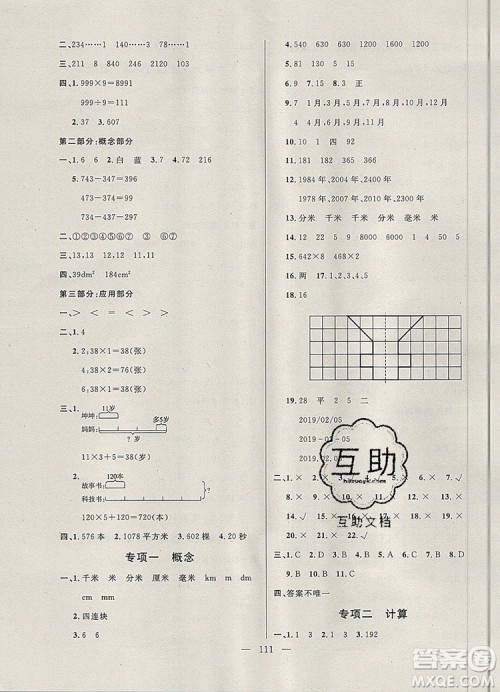 二、234……1 140……1 3 178……1
三、211 8 216 840 1200 8
四、1. 999×9=8991
999÷9=111
2. 37 3. 607
第二部分:概念部分
一、1. 6 6 2. 白 蓝 4. 72 216
5. 743-347=396
473-374=99
734-437=297
二、②①④③
三、13,13 12,11 24,12
四、39dm² 184cm²
第三部分:应用部分
一、> < = < > >
二、1. 4
2. 38×1=38(张)
4. 38×1=38(张)
6. 38×1=38(张)
三、1. 11岁
坤坤: 多5岁
妈妈:
?岁
11×3+5=38(岁)
2. 120本
故事书:
?本
科技书:
120×5+120=720(本)
四、1. 576本 2. 1078平方米 3. 602棵 4. 20秒
专项一 概念
一、1. 千米 米 分米 厘米 毫米 km m dm
cm mm
2. 四连块
3. 6 6
4. 540 630 1200 1500 690 1240
5. 81 130 5 15
6. 630
7. 15 8. 3 正
9. 7 1月,3月,5月,7月,8月,10月,12月 4
4月,6月,9月,11月
10. 10 1 四 92
11. 1984年,2004年,2000年
1978年,2009年,2010年
12. 分米 千米 千米 分米 毫米 米
13. 5 12 8 8000 6 2
15. 642×8 468×2
16. 两 17. 1,2,3,4,5
18. 16
19. 28 平 2 5 二
2019/02/05
2019-02-05
2019.02.05
三、1. C 2. B 3. C 4. C
7. B 8. D 9. B 10. C 11. A
四、答案不唯一
专项二 计算
一、1. 3 1 2. 3 3. 192
111
互助
互助文档
答案圈
MXQE.COM